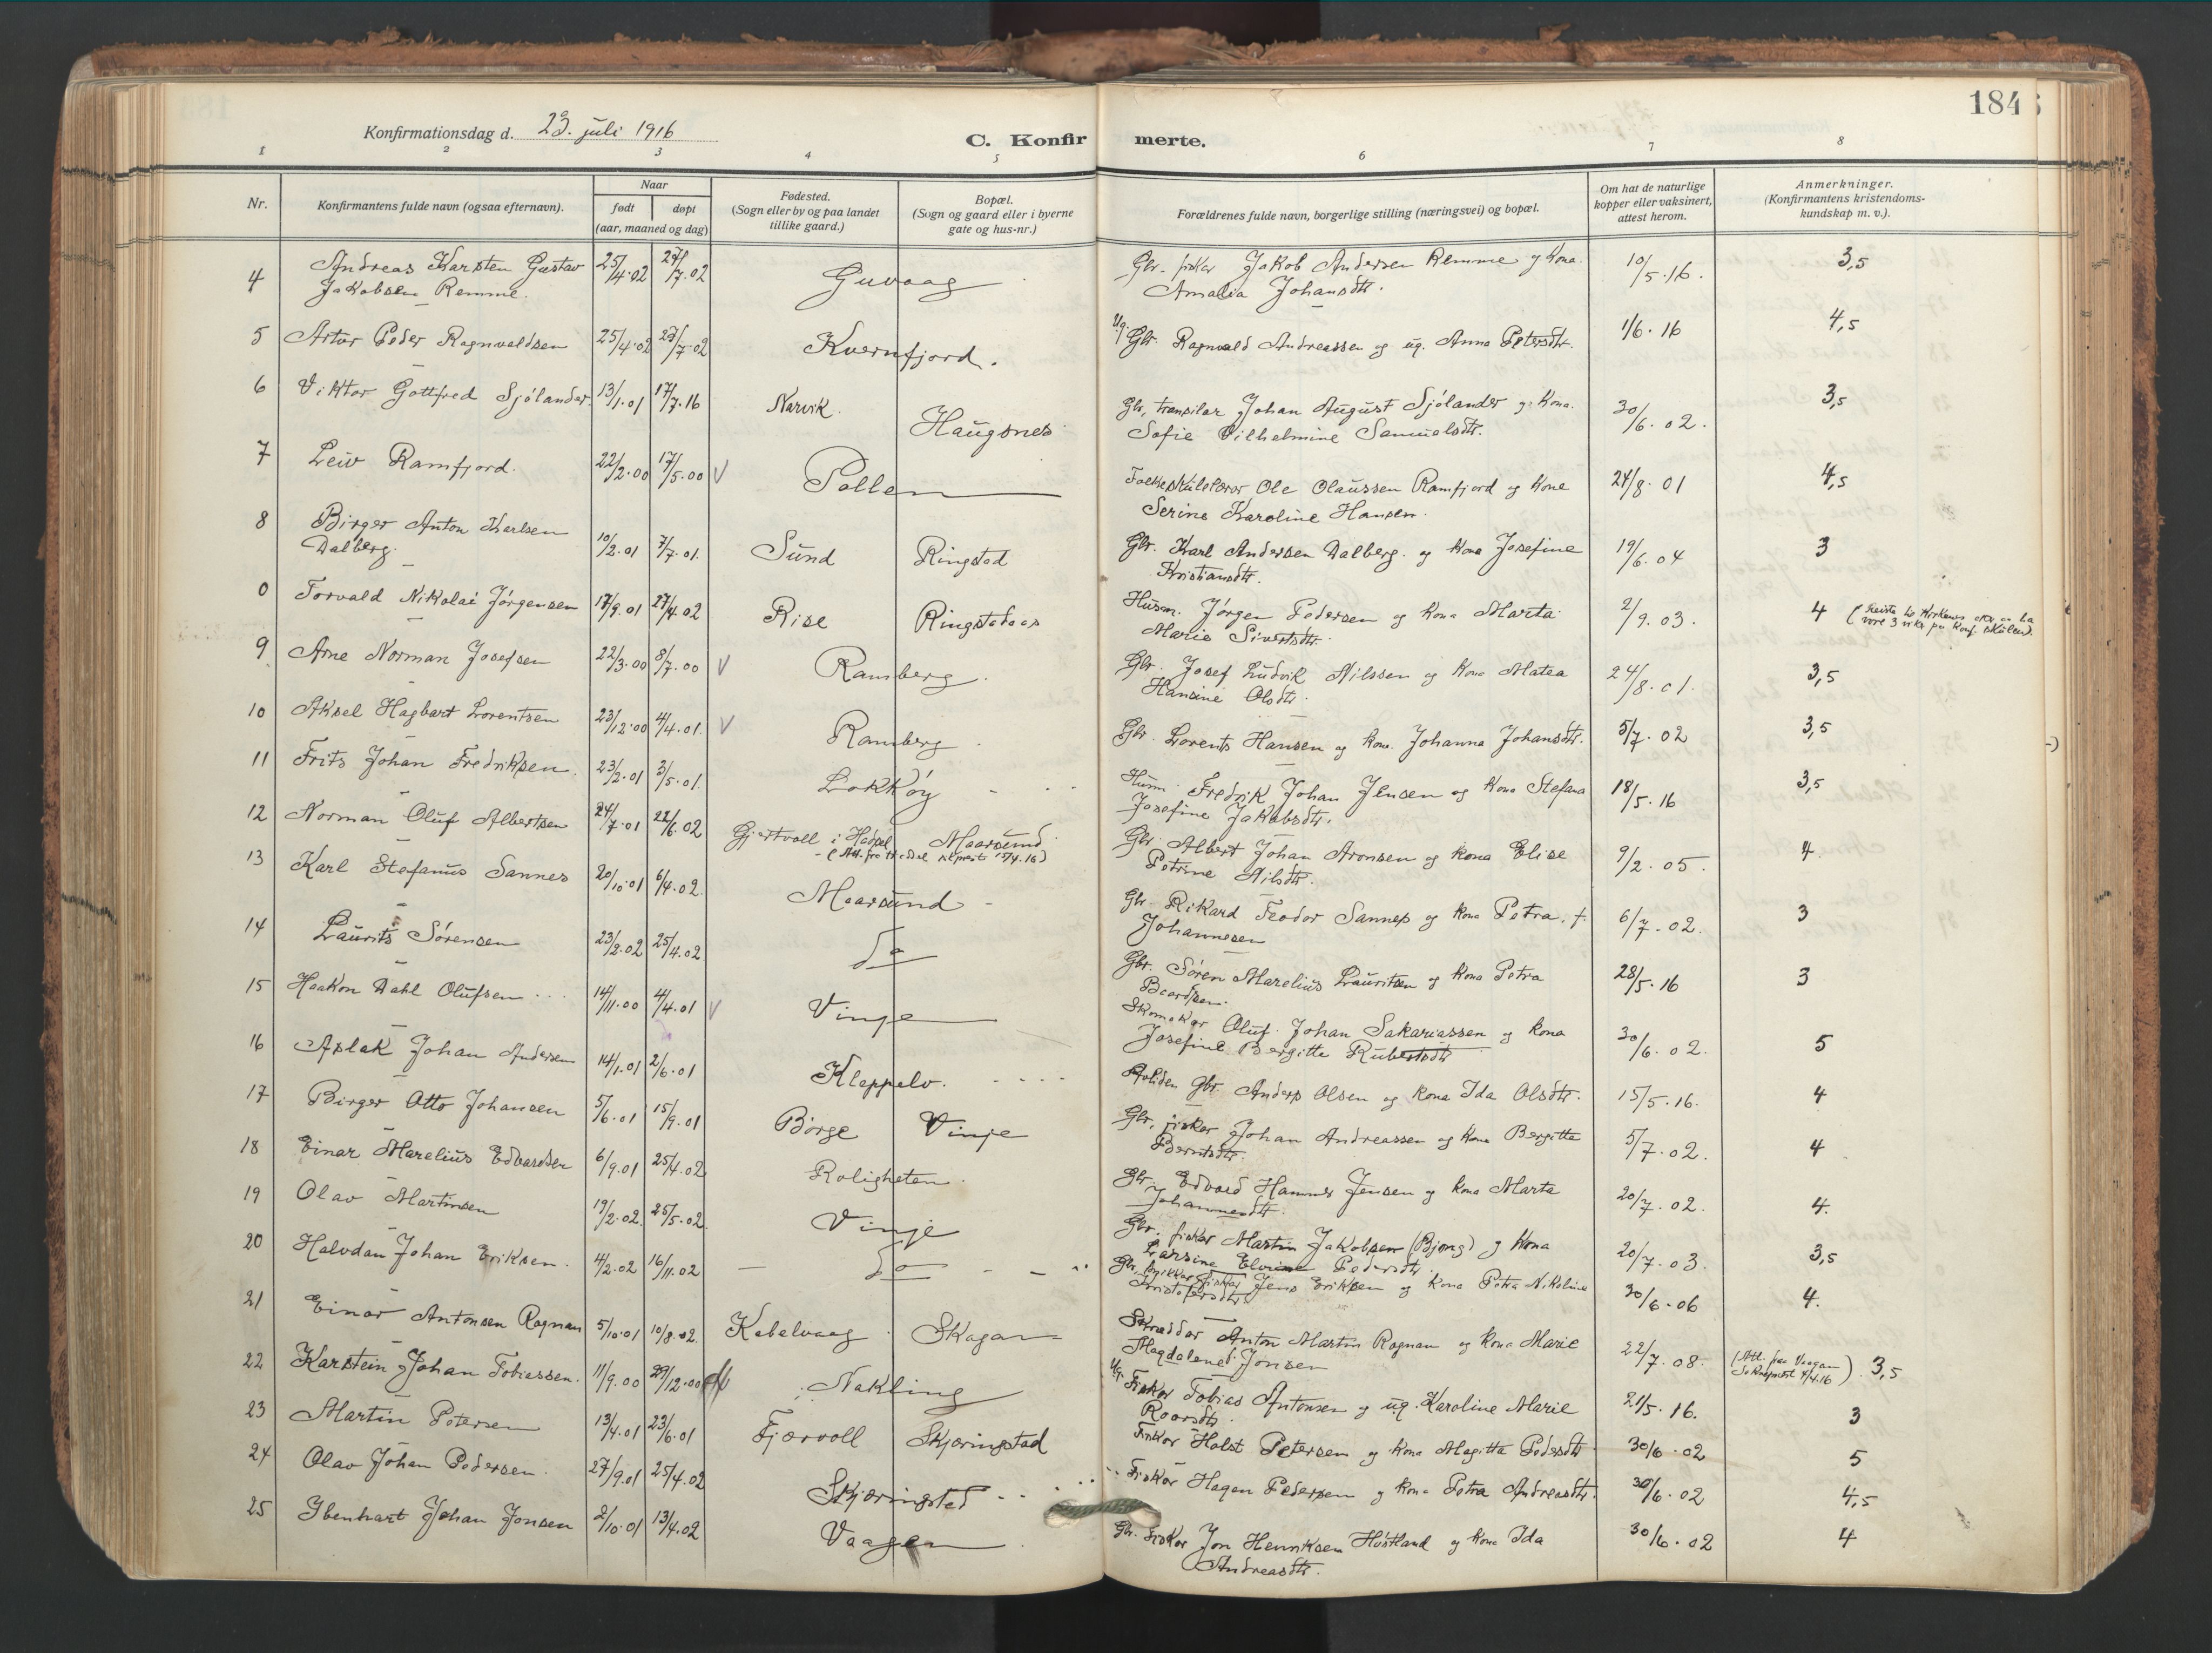 184
Konfirmationsdag d. 23. juli 1916
C. Konfirmerte.
1 2 3 4 5 6 7 8
Nr.
Konfirmantens fulde navn (ogsaa efternavn).
Naar
født døpt
(aar, maaned og dag)
Fødested.
(Sogn eller by og paa landet
tillike gaard.)
Bopæl.
(Sogn og gaard eller i byerne
gate og hus-nr.)
Forældrenes fulde navn, borgerlige stilling (næringsvei) og bopæl.
Om hat de naturlige
kopper eller vaksinert,
attest herom.
Anmerkninger.
(Konfirmantens kristendoms-
kundskap m. v.).
4 Andreas Karsten Gustav 25/4.02 27/7.02 Guvaag Gbr. fisker Jakob Andersen Remme og kona 10/5.16. 3,5
Jakobsen Remme. Amalia Johansdtr.
5 Artur Peder Ragnvaldsen 25/4.02 27/7.02 Kvernfjord. Ug. Gbr. Ragnvald Andreassen og ug. Anna Petersdtr. 1/6.16 4,5
6 Viktor Gottfred Sjölander 13/1.01 17/7.16 Narvik. Haugsnes Gbr, transilar Johan August Sjölander og kona 30/6.02. 3,5
Sofie Vilhelmine Samuelsdtr.
7 Leiv Ramfjord. 22/2.00 17/5.00 V Pollen Folkeskulelærar Ole Olaussen Ramfjord og kone 24/8.01 4,5
Serine Karoline Hansen.
8 Birger Anton Karlsen 10/2.01 7/7.01. Sund Ringstad Gbr. Karl Andersen Dalberg. og kona Josefine 19/6.04 3
Dalberg. Kristiansdtr.
0 Torvald Nikolai Jörgensen 17/9.01 27/4.02 Rise Ringstadaas Husm. Jörgen Pedersen og kona Marta 2/9.03. 4 (reiste to Kirkenes
Marie Sivertsdtr. vore 3 vikr paa konf. skulen).
9 Arne Norman Josefsen 22/3.00 8/7.00 V Ramberg. Gbr. Josef Ludvik Nilssen og kona Matea 24/8.01. 3,5
Hansine Olsdtr.
10 Aksel Hagbart Lorentsen 23/12.00 4/4.01. V Ramberg Gbr. Lorents Hansen og kona Johanna Johansdtr. 5/7.02 3,5
11 Frits Johan Fredriksen. 23/2.01 3/5.01. Lokköy Husm. Fredrik Johan Jensen og kona Stefana 18/5.16 3,5
Josefine Jakobsdtr.
12 Norman Oluf Albertsen 24/7.01 22/6.02 Gjertvoll i Hadsel Maarsund Gbr. Albert Johan Aronsen og kona Elise 9/2.05. 4.
(Att. fra Hadsel 17/4.16) Petrine Nilsdtr.
13 Karl Stefanus Sannes 20/10.01 6/4.02. Maarsund Gbr. Rikard Teodor Sannes og kona Petra, f. 6/7.02. 3
Johannesen
14 Laurits Sörensen 23/2.02 25/4.02 do Gbr. Sören Marelius Lauritsen og kona Petra 28/5.16 3
15 Haakon Dahl Olufsen 14/11.00 4/4.01 V Vinje Skomakar Oluf Johan Sakariassen og kona 30/6.02. 5
Josefine Bergitte Rubertsdtr
16 Aslak Johan Andersen 14/1.01 2/6.01 Kleppelv. Avliden Gbr. Anders Olsen og kona Ida Olsdtr. 15/5.16. 4
17 Birger Otto Johansen 5/6.01 15/9.01 Börge Vinje Gbr, fisker Johan Andreassen og kona Bergitta 5/7.02. 4
Berntsdtr.
18 Einar Marelius Edvardsen 6/9.01 25/4.02 Roligheten. Gbr. Edvard Hammer Jensen og kona Marta 20/7.02. 4.
Johannesdtr.
19 Olav Martinsen 19/2.02. 25/5.02 Vinje Gbr. fisker Martin Jakobsen (Bjong) og kona 20/7.03. 3,5
Larsine Elvine Pedersdtr.
20 Halvdan Johan Eriksen. 4/2.02 16/11.02 do Gbr, snikkar, fisker Jens Eriksen og kona Petra Nikoline 30/6.06 4.
Kristofersdtr.
21 Einar Antonsen Rognan 5/10.01 10/8.02. Kabelvaag Skagan Skræddar Anton Martin Rognan og kona Marie 22/7.08. (Att. fraa Vaagan 3,5
Magdalena f. Jonsen Sokneprest 4/4.16)
22 Karstein Johan Tobiassen. 11/9.00 29/12.00 Nakling Ug. Fisker Tobias Antonsen og ug. Karoline Marie 21/5.16. 3
Roarsdtr.
23 Martin Petersen 13/4.01 23/6.01 Fjærvoll Skjæringstad Fisker Holst Petersen og kona Magitta Pedersdtr 30/6.02 5
24 Olav Johan Pedersen. 27/9.01 25/4.02 Skjæringstad Fisker Hagen Pedersen og kona Petra Andreasdtr. 30/6.02 4,5
25 Ibenhart Johan Jonsen 2/10.01 13/4.02 Vaagen Gbr. fisker Jon Henriksen Höstland og kona Ida 30/6.02 4
Andreasdtr.